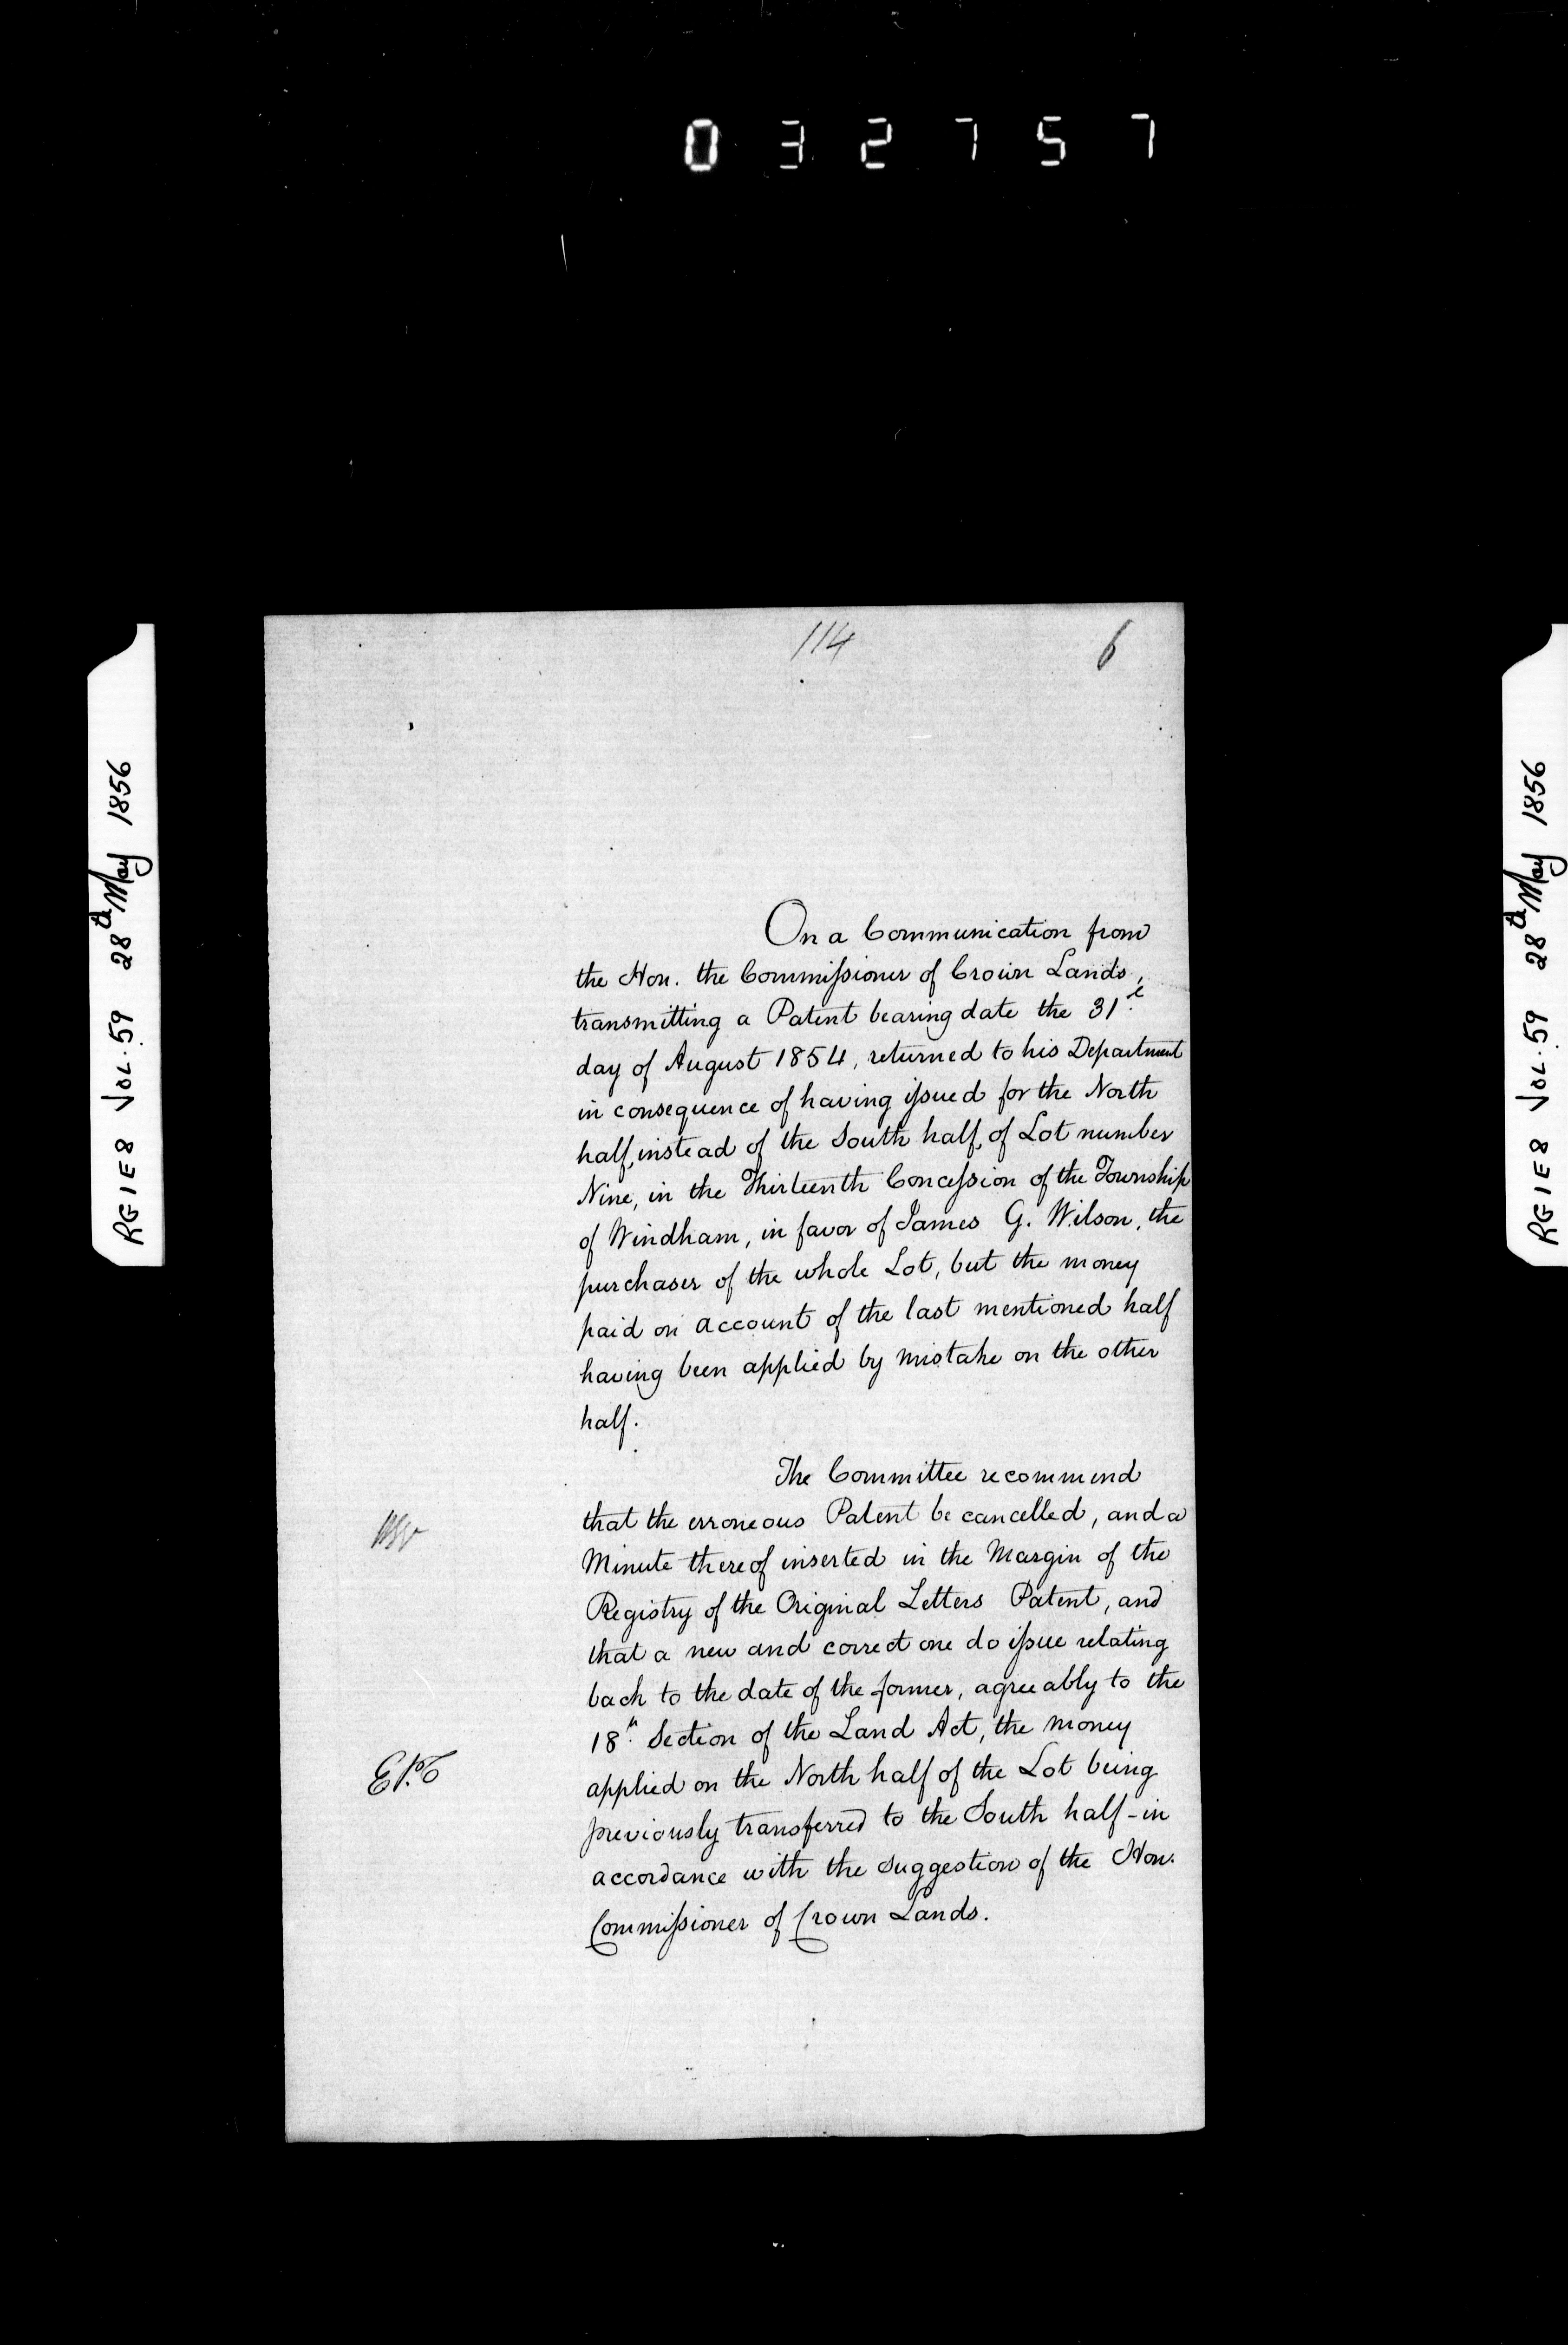 032757
114
6
RG1E8 VOL.59 28th May 1856
On a Communication from
the Hon. the Commissioner of Crown Lands,
transmitting a Patent bearing date the 31st
day of August 1854, returned to his Department
in consequence of having issued for the North
half, instead of the South half, of Lot number
Nine, in the Thirteenth Concession of the Township
of Windham, in favor of James G. Wilson, the
purchaser of the whole Lot, but the money
paid on account of the last mentioned half
having been applied by mistake on the other
half.
The Committee recommend
that the erroneous Patent be cancelled, and a
Minute thereof inserted in the Margin of the
Registry of the Original Letters Patent, and
that a new and correct one do issue relating
back to the date of the former, agreeably to the
18th Section of the Land Act, the money
applied on the North half of the Lot being
previously transferred to the South half - in
accordance with the suggestion of the Hon.
Commissioner of Crown Lands.
RG1E8 VOL.59 28th May 1856